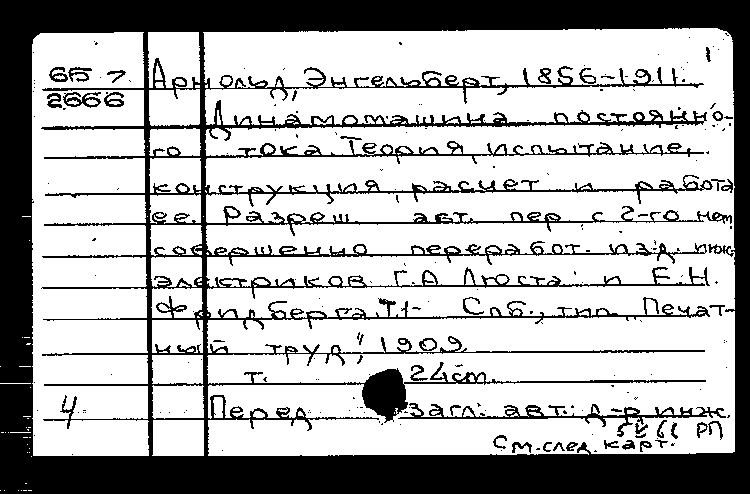 1
6Б7 Арнольд, Энгельберт, 1856-1911.
2666
Динамомашина постоянно-
го тока. Теория, испытание,
конструкция, расчет и работа
ее. Разреш. авт. пер. с 2-го нем.
совершенно переработ. изд. инж.
электриков Г.А. Люста и Е.Н.
Фридберга. Т.1- Спб., тип. "Печат-
ный труд", 1909.
т. 24 cm.
4 Перед загл. авт.: д-р инж.
РП
См. след. карт.